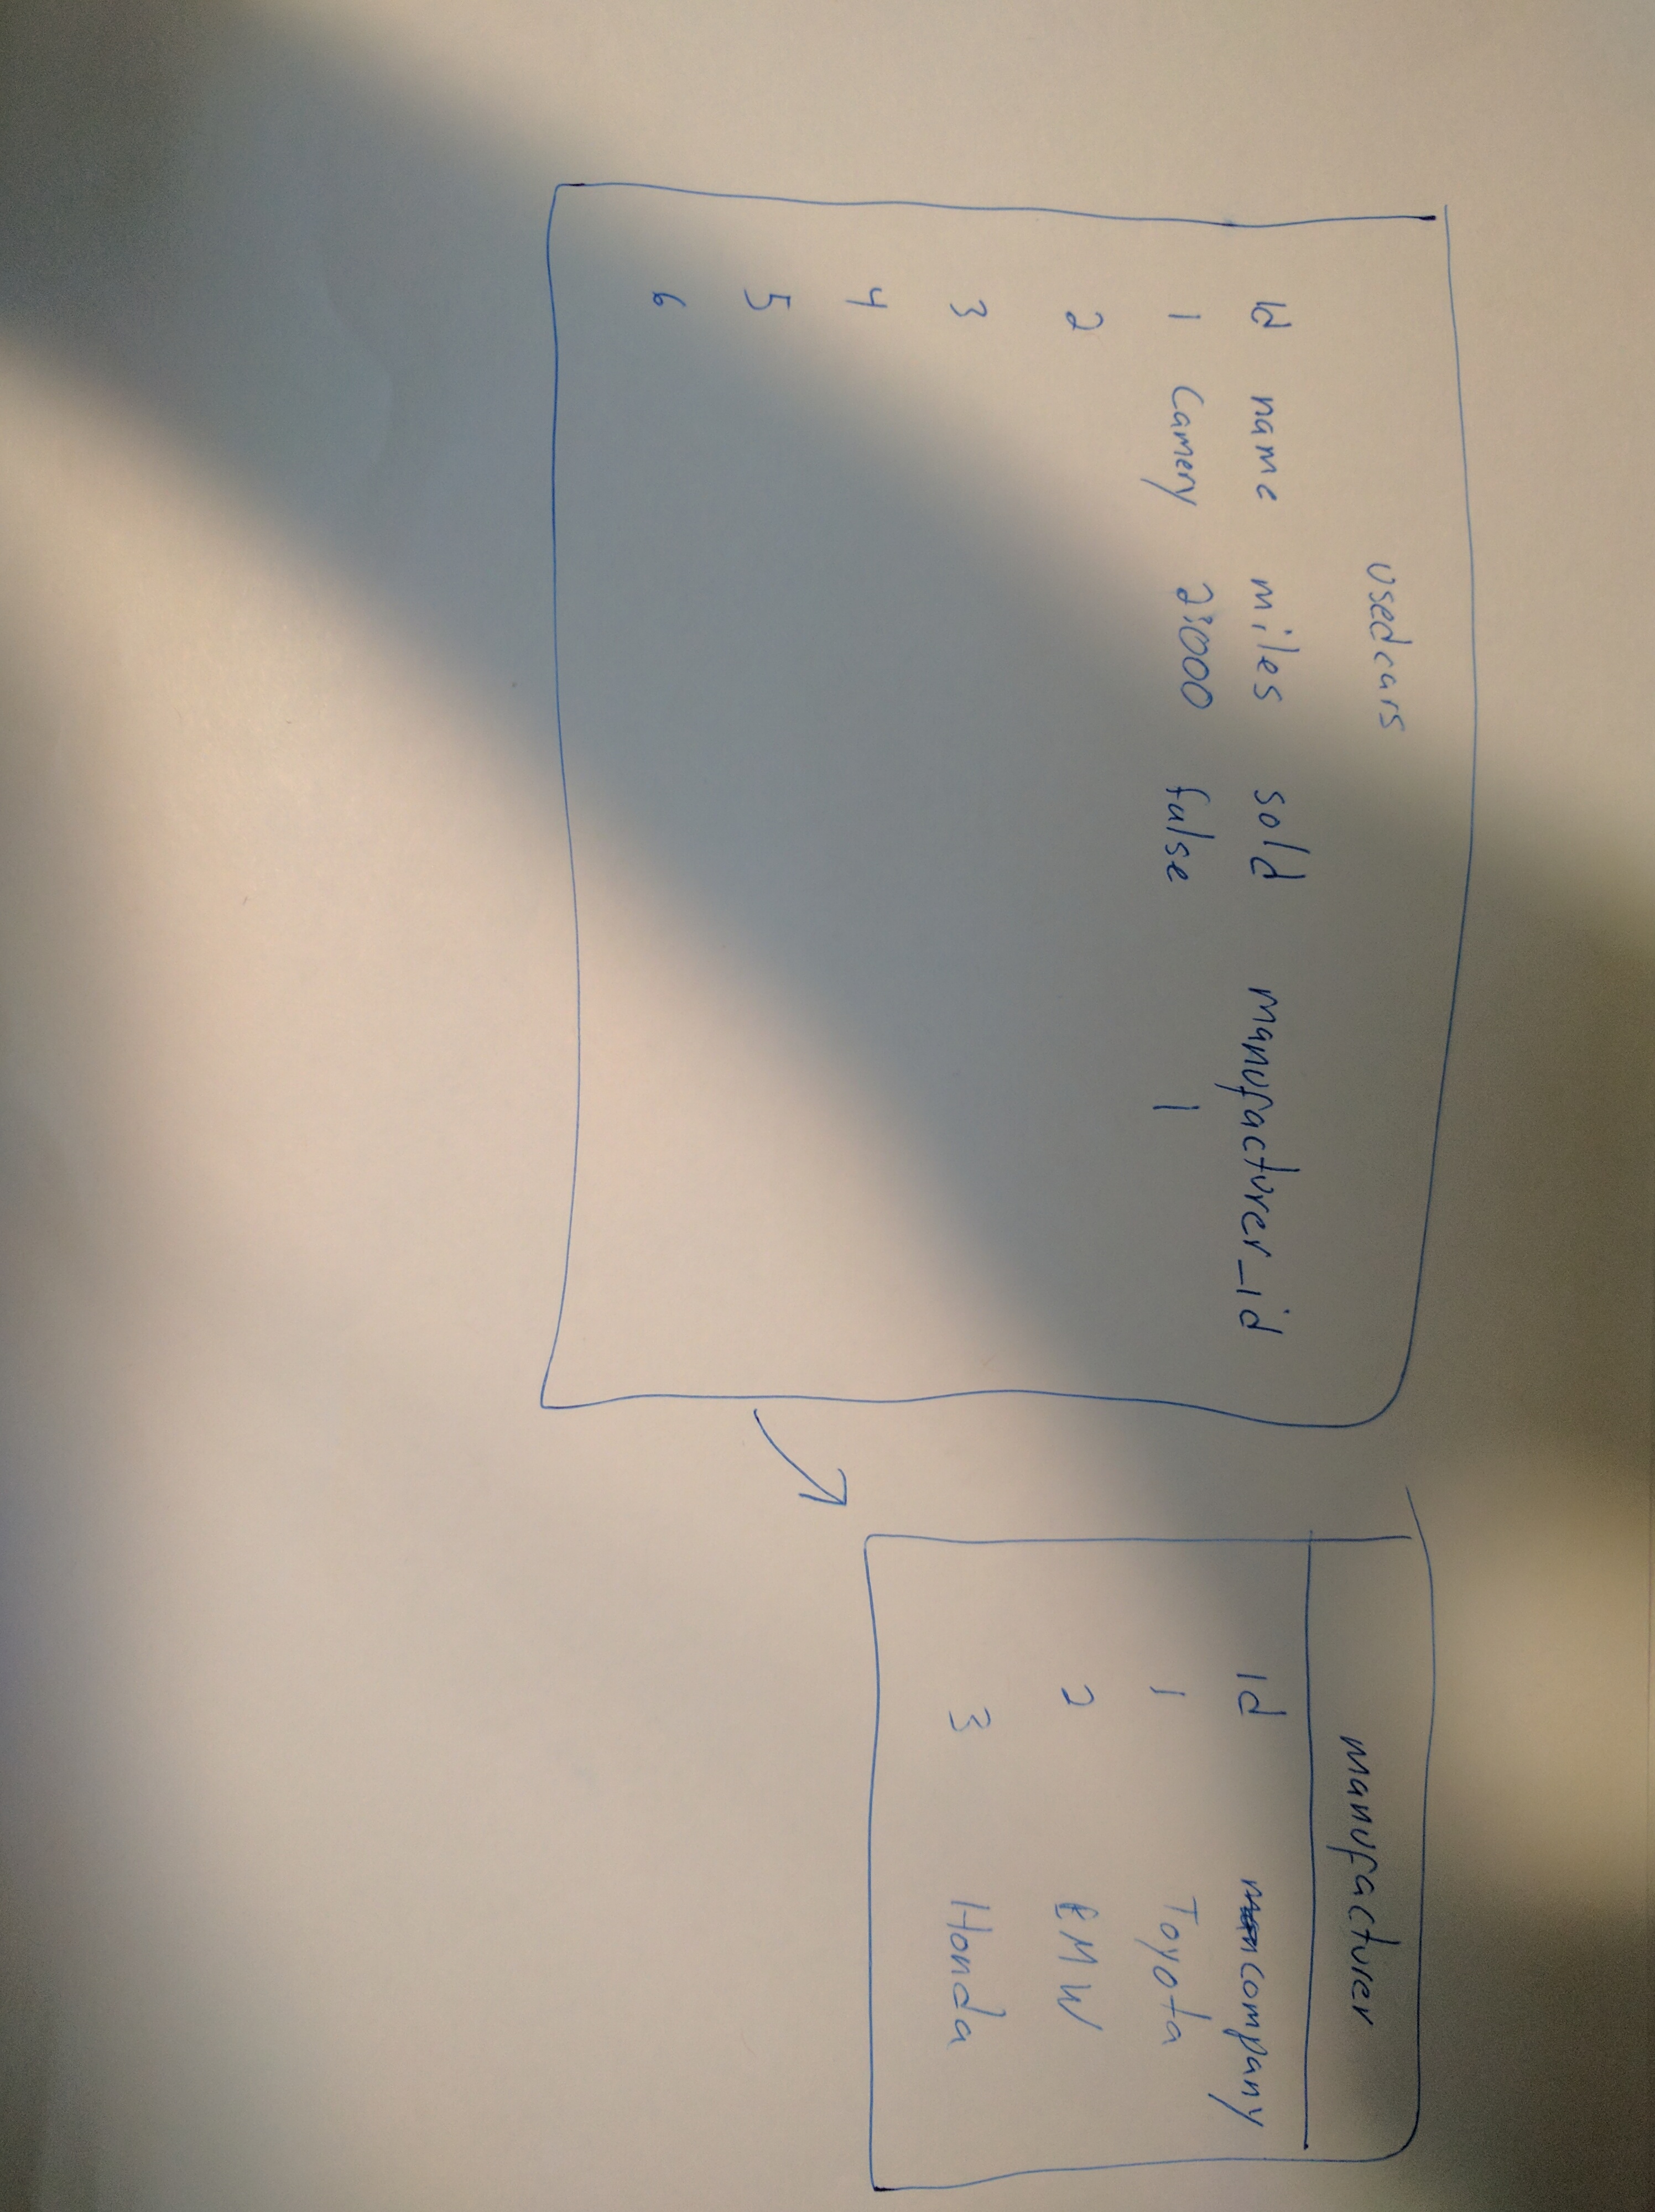 usedcars
Id name miles sold manufacturer_id
1 Camery 2:000 false 1
2
3
4
5
6
manufacturer
Id company
1 Toyota
2 BMW
3 Honda